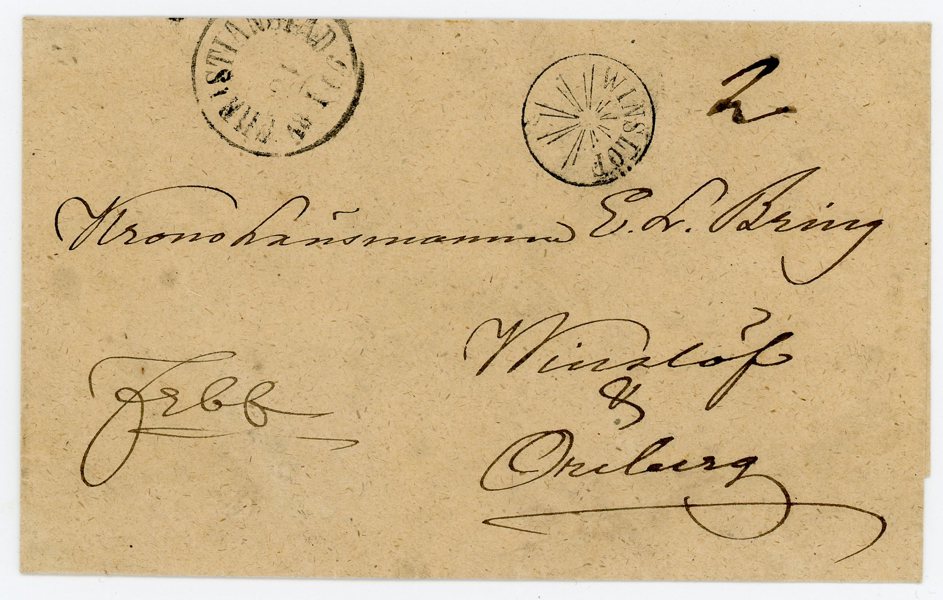 CHRISTIANSTAD
WINSLÖF
2
Kronolänsmannen E. L. Bring
Winslöf
&
Öneberg